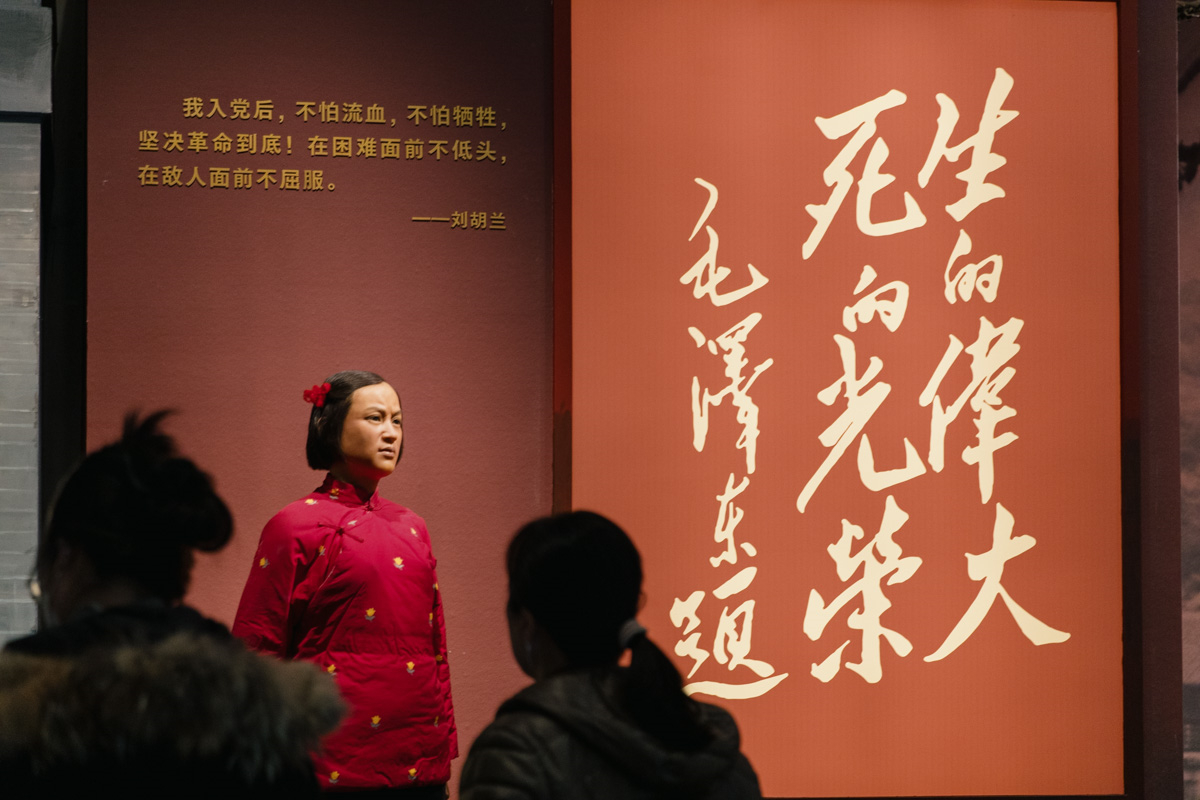 我入党后，不怕流血，不怕牺牲，
坚决革命到底！在困难面前不低头，
在敌人面前不屈服。
——刘胡兰
生的偉大
死的光榮
毛澤东题